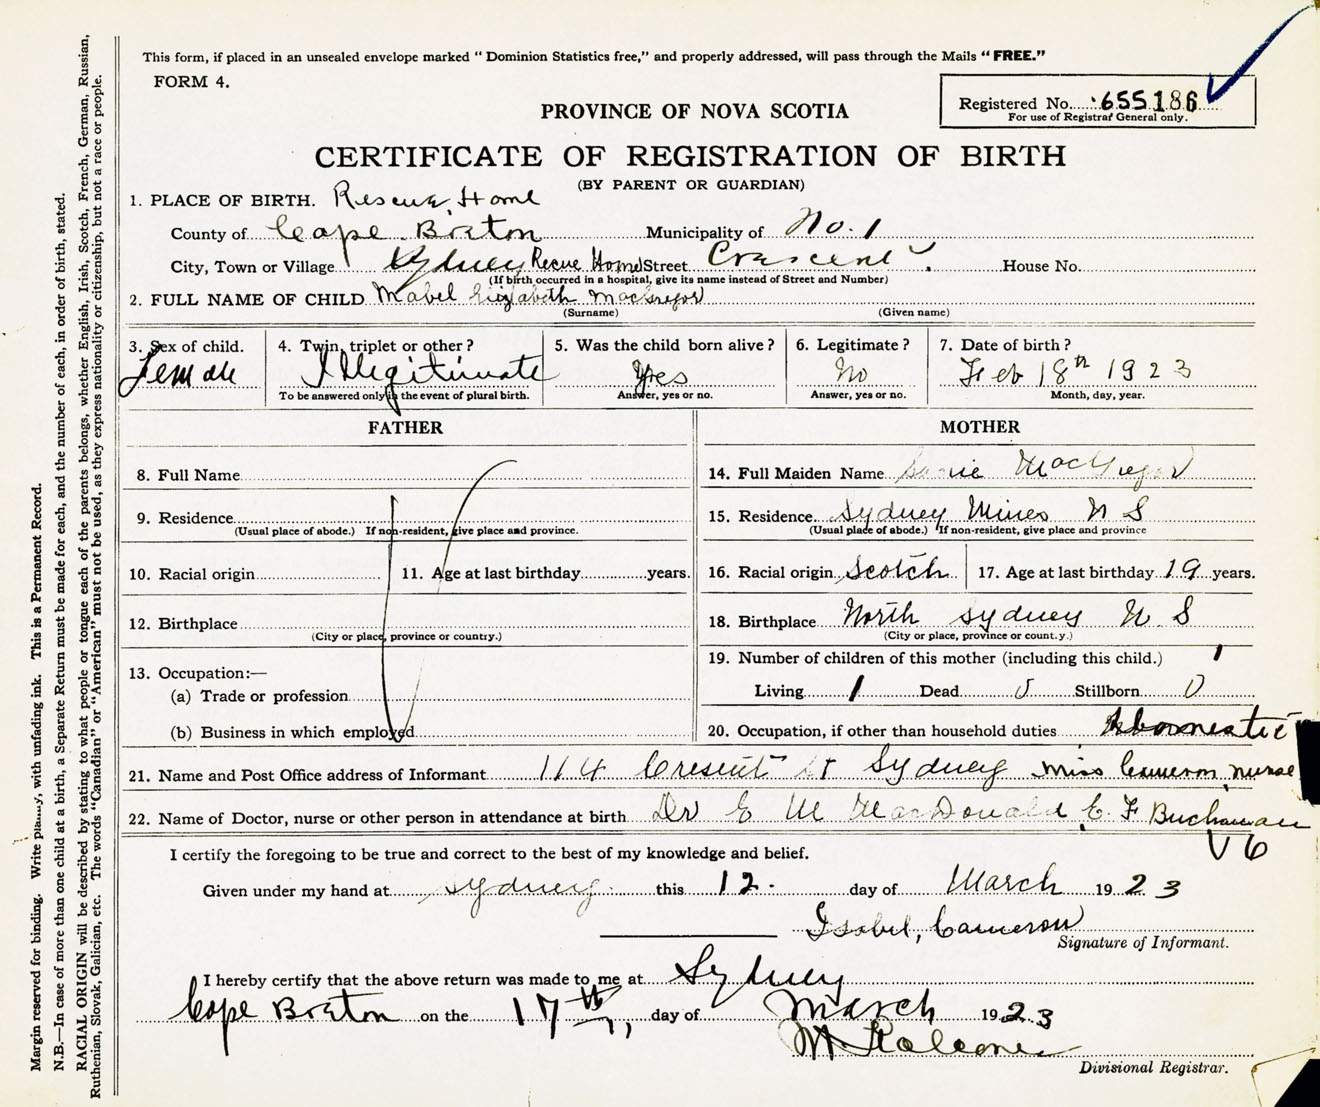 This form, if placed in an unsealed envelope marked "Dominion Statistics free," and properly addressed, will pass through the Mails "FREE."
FORM 4.
Registered No. 655186
For use of Registrar General only.
PROVINCE OF NOVA SCOTIA
CERTIFICATE OF REGISTRATION OF BIRTH
(BY PARENT OR GUARDIAN)
1. PLACE OF BIRTH. Rescue Home
County of Cape Breton Municipality of No. 1
City, Town or Village Sydney Recue Home Street Crescent House No.
(If birth occurred in a hospital, give its name instead of Street and Number)
2. FULL NAME OF CHILD Mabel Elizabeth MacGregor
(Surname) (Given name)
3. Sex of child. 4. Twin, triplet or other? 5. Was the child born alive? 6. Legitimate? 7. Date of birth?
Female Illegitimate Yes No Feb 18th 1923
To be answered only in the event of plural birth. Answer, yes or no. Answer, yes or no. Month, day, year.
FATHER MOTHER
8. Full Name 14. Full Maiden Name MacGregor
9. Residence 15. Residence Sydney Mines N S
(Usual place of abode.) If non-resident, give place and province. (Usual place of abode.) If non-resident, give place and province
10. Racial origin 11. Age at last birthday years. 16. Racial origin Scotch 17. Age at last birthday 19 years.
12. Birthplace 18. Birthplace North Sydney N S
(City or place, province or country.) (City or place, province or country.)
13. Occupation:— 19. Number of children of this mother (including this child.) 1
(a) Trade or profession Living 1 Dead 0 Stillborn 0
(b) Business in which employed 20. Occupation, if other than household duties domestic
21. Name and Post Office address of Informant 114 Cresent St Sydney Miss Cameron, nurse
22. Name of Doctor, nurse or other person in attendance at birth Dr E M MacDonald E. F Buchanan
V 6
I certify the foregoing to be true and correct to the best of my knowledge and belief.
Given under my hand at Sydney this 12. day of March 1923
Isabel, Cameron
Signature of Informant.
I hereby certify that the above return was made to me at Sydney
Cape Breton on the 17th day of March 1923
Divisional Registrar.
Margin reserved for binding. Write plainly, with unfading ink. This is a Permanent Record.
N.B.—In case of more than one child at a birth, a Separate Return must be made for each, and the number of each, in order of birth, stated.
RACIAL ORIGIN will be described by stating to what people or tongue each of the parents belongs, whether English, Irish, Scotch, French, German, Russian,
Ruthenian, Slovak, Galician, etc. The words "Canadian" or "American" must not be used, as they express nationality or citizenship, but not a race or people.